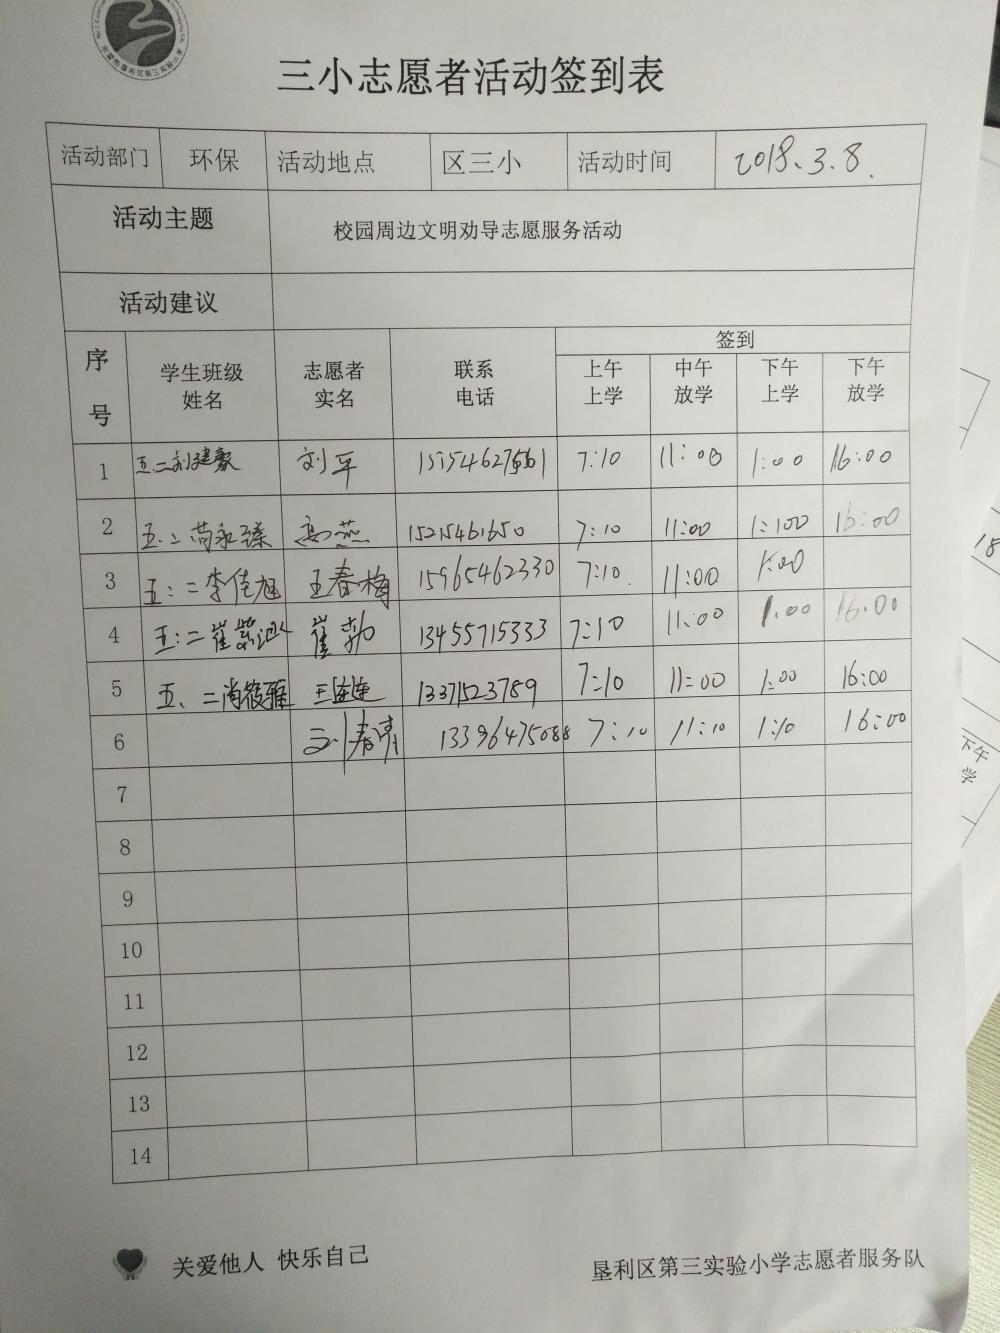 三小志愿者活动签到表
活动部门 环保 活动地点 区三小 活动时间 2018.3.8.
活动主题 校园周边文明劝导志愿服务活动
活动建议
序号 学生班级姓名 志愿者实名 联系电话 签到
上午上学 中午放学 下午上学 下午放学
1 五.二刘建毅 刘平 7:10 11:00 1:00 16:00
2 五.二尚永臻 高燕 15215461650 7:10 11:00 1:00 16:00
3 五:二李佳旭 王春梅 15965462330 7:10. 11:00 1:00
4 五:二崔 崔勃 13455715333 7:10 11:00 1:00 16:00
5 五、二尚筱雅 王连连 13371523789 7:10 11:00 1:00 16:00
6 刘春青 13396475088 7:10 11:10 1:10 16:00
7
8
9
10
11
12
13
14
关爱他人 快乐自己
垦利区第三实验小学志愿者服务队
18
下午
学